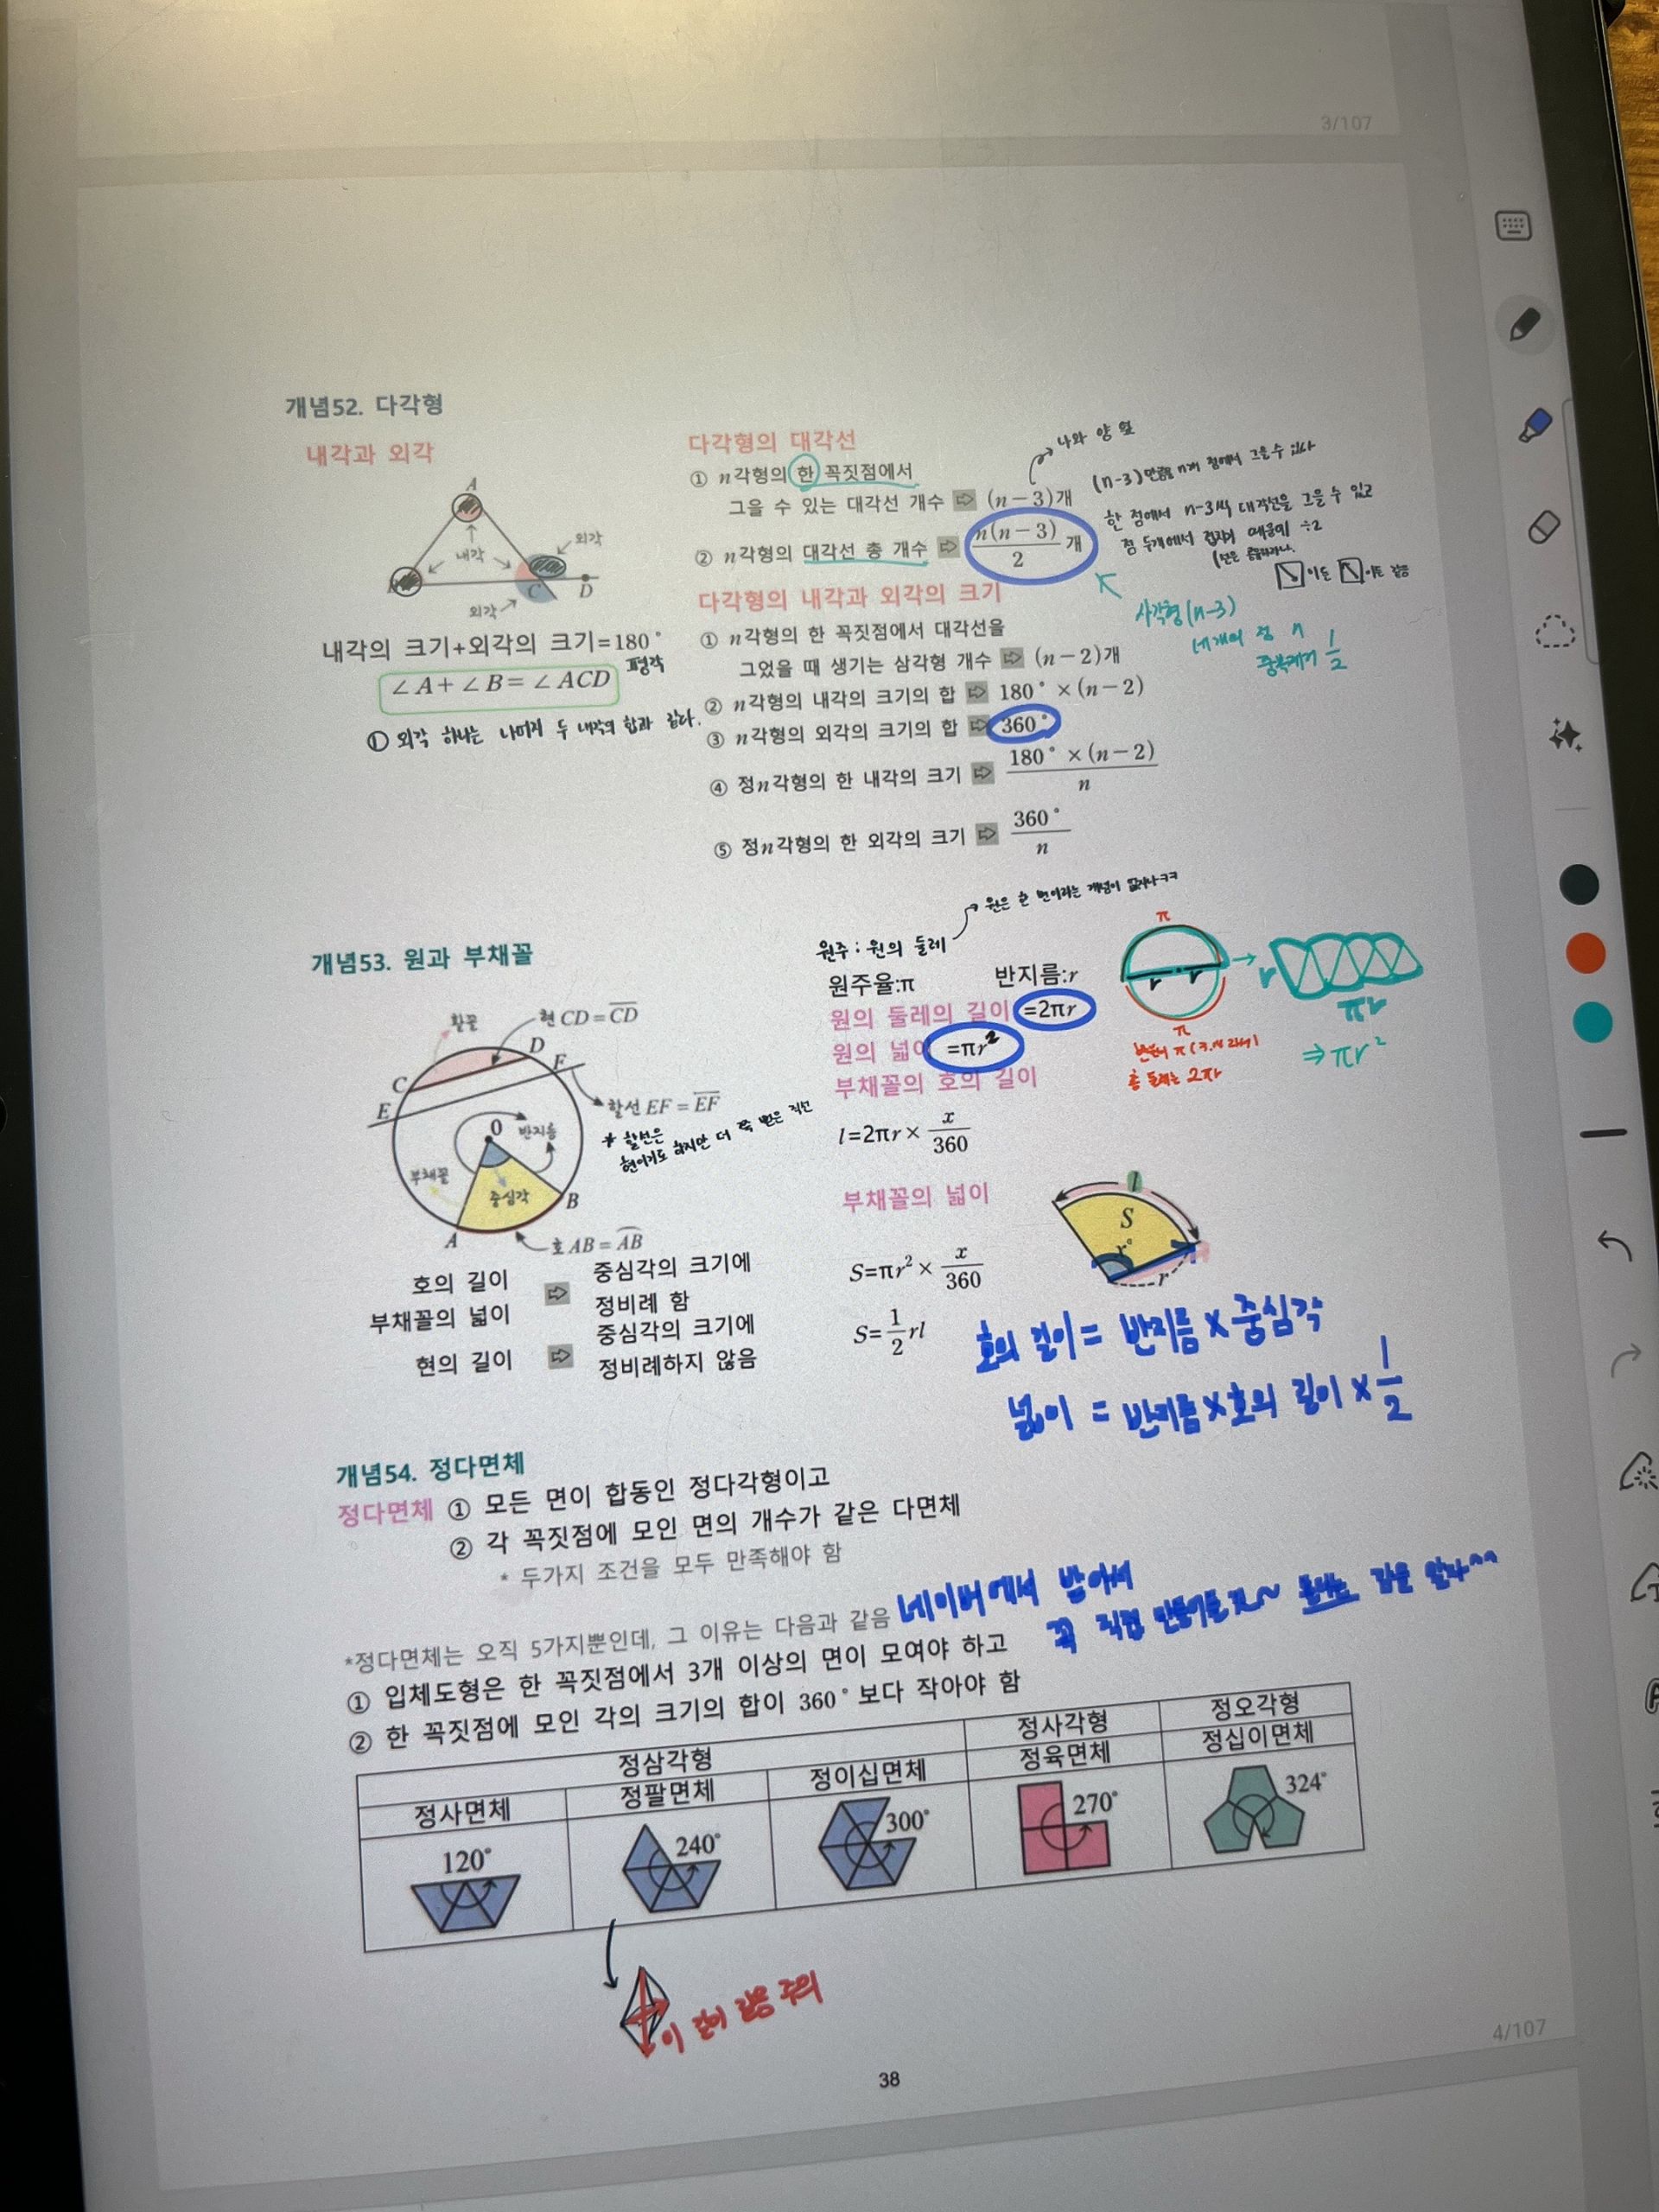 3/107
개념52. 다각형
내각과 외각
A
내각
외각
C
D
외각
내각의 크기+외각의 크기=180°
평각
∠A+∠B=∠ACD
① 외각 하나는 나머지 두 내각의 합과 같다.
다각형의 대각선
① n각형의 한 꼭짓점에서
그을 수 있는 대각선 개수 ⇨ (n−3)개
나와 양 옆
② n각형의 대각선 총 개수 ⇨ n(n−3)/2 개
(n-3)만큼을 n개 점에서 그을 수 있다
한 점에서 n-3씩 대각선을 그을 수 있고
점 두개에서 겹치기 때문에 ÷2
이든 이든 같음
사각형 (n-3)
네개의 점 n
중복제거 1/2
다각형의 내각과 외각의 크기
① n각형의 한 꼭짓점에서 대각선을
그었을 때 생기는 삼각형 개수 ⇨ (n−2)개
② n각형의 내각의 크기의 합 ⇨ 180° ×(n−2)
③ n각형의 외각의 크기의 합 ⇨ 360°
④ 정n각형의 한 내각의 크기 ⇨ 180° ×(n−2)/n
⑤ 정n각형의 한 외각의 크기 ⇨ 360°/n
개념53. 원과 부채꼴
활꼴
현 CD=C̅D̅
D
F
C
E
할선 EF=E̅F̅
* 할선은
현이기도 하지만 더 쭉 뻗은 직선
O
반지름
부채꼴
중심각
B
A
호 AB=A͡B
호의 길이
부채꼴의 넓이
⇨
중심각의 크기에
정비례 함
현의 길이
⇨
중심각의 크기에
정비례하지 않음
원주 : 원의 둘레
원은 한 변이라는 개념이 없자나ㅋㅋ
원주율:π
반지름:r
원의 둘레의 길이 =2πr
원의 넓이 =πr²
부채꼴의 호의 길이
l=2πr× x/360
부채꼴의 넓이
S=πr²× x/360
S=1/2 rl
π
r r
π
총 둘레는 2πr
r
πr
⇒πr²
l
S
x°
r
호의 길이 = 반지름 × 중심각
넓이 = 반지름×호의 길이 × 1/2
개념54. 정다면체
정다면체 ① 모든 면이 합동인 정다각형이고
② 각 꼭짓점에 모인 면의 개수가 같은 다면체
* 두가지 조건을 모두 만족해야 함
*정다면체는 오직 5가지뿐인데, 그 이유는 다음과 같음
네이버에서 받아서
꼭 직접 만들어볼 것~
① 입체도형은 한 꼭짓점에서 3개 이상의 면이 모여야 하고
② 한 꼭짓점에 모인 각의 크기의 합이 360°보다 작아야 함
정삼각형
정사각형
정오각형
정사면체
정팔면체
정이십면체
정육면체
정십이면체
120°
240°
300°
270°
324°
이 길이 같음 주의
38
4/107